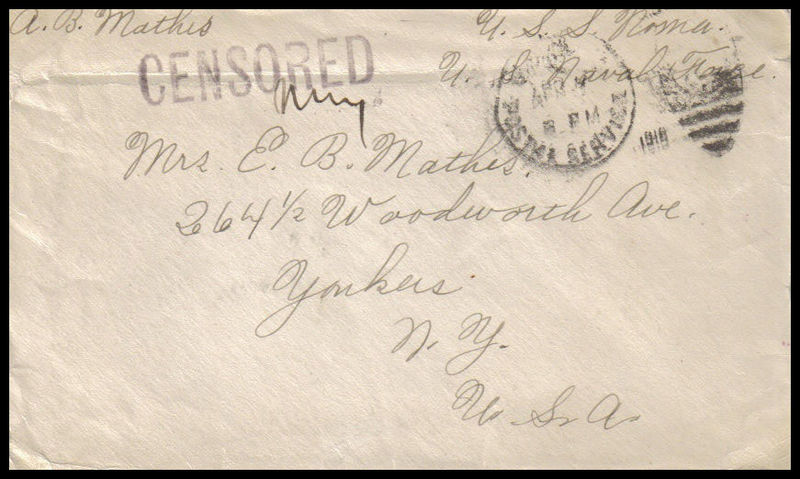 A. B. Mathis
U. S. S. Roma.
U. S. Naval Force.
CENSORED
APR
PM
POSTAL SERVICE
1918
Mrs. E. B. Mathis,
264 1/2 Woodworth Ave.
Yonkers
N. Y.
U. S. A.